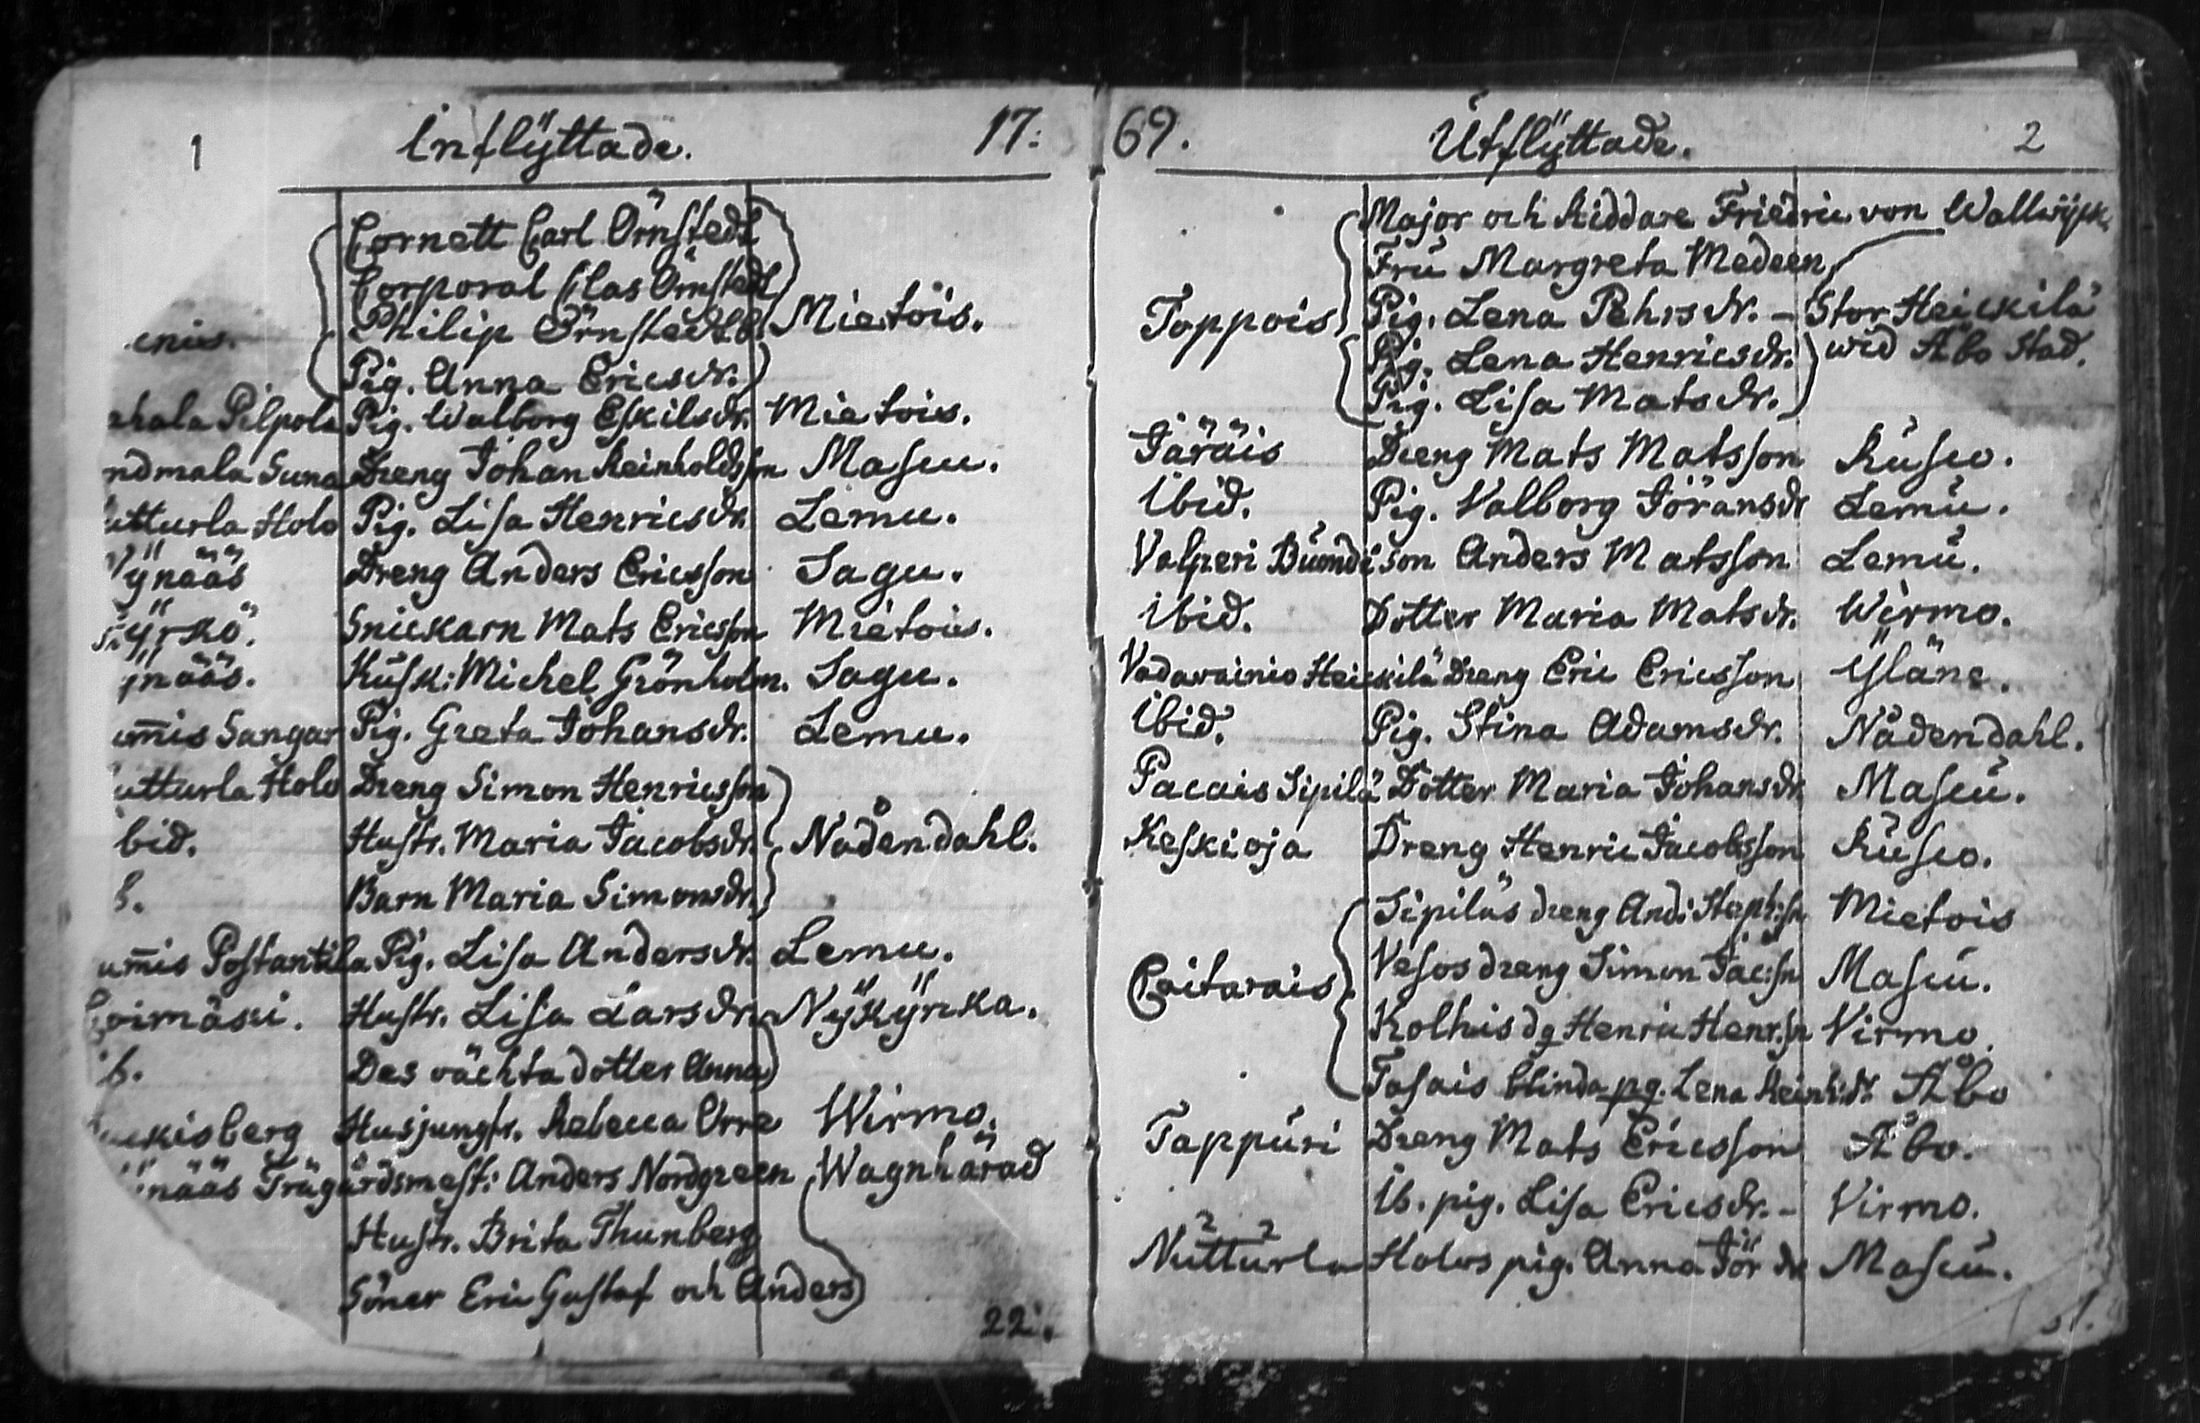 1 Inflÿttade. 17:
Cornett Carl Örnstedt
Corporal Clas Örnstedt
Philip Örnstedt Mietois.
Pig. Anna Ericsdr.
Pilpola Pig. Walborg Eskilsdr. Mietois.
ndmala Suna Dreng Johan Reinholdsson Mascu.
utturla Holo Pig. Lisa Henricsdr. Lemu.
ÿnääs Dreng Anders Ericsson Sagu.
Snickarn Mats Ericsson Mietois.
ÿnääs. Kusk: Michel Grönholm. Sagu.
um̄is Sangar Pig. Greta Johansdr. Lemu.
utturla Holo Dreng Simon Henricsson
bid. Hustr. Maria Jacobsdr. Nådendahl.
b. Barn Maria Simonsdr.
um̄is Postantila Pig. Lisa Andersdr. Lemu.
Hustr. Lisa Larsdr. Nÿkÿrka.
b. Des oächta dotter Anna
ckisberg Husjungfr. Rebecca Orre Wirmo.
nääs Trägårdsmest: Anders Nordgreen Wagnhärad
Hustr. Brita Thunberg
Söner Eric Gustaf och Anders
22.
69. Utflÿttade. 2
Major och Riddare Friedric von Wallwijk
Fru Margreta Medeen
Toppois Pig. Lena Pehrsdr. - Stor Heickilä
Pig. Lena Henricsdr. wid Åbo Stad.
Pig. Lisa Matsdr.
Järäis Dreng Mats Matsson Rusco.
Ibid. Pig. Valborg Jöransdr Lemu.
Valperi Buondi son Anders Matsson Lemu.
ibid. Dotter Maria Matsdr. Wirmo.
Vadavainio Heickilä Dreng Eric Ericsson Ÿläne.
Ibid. Pig. Stina Adamsdr. Nådendahl.
Pacais Sipilä Dotter Maria Johansdr Mascu.
Keskioja Dreng Henric Jacobsson Rusco.
Sipiläs dreng And: Steph:sn Mietois
Caitarais Vesos dreng Simon Jac:sn Mascu.
Kolhis dg Henric Henr:sn Virmo.
Tasais blinda pg. Lena Reinh:dr. Åbo
Tappuri Dreng Mats Ericsson Åbo.
Ib. pig. Lisa Ericsdr. - Virmo.
Nutturla Holos pig. Anna Jör dr Mascu.